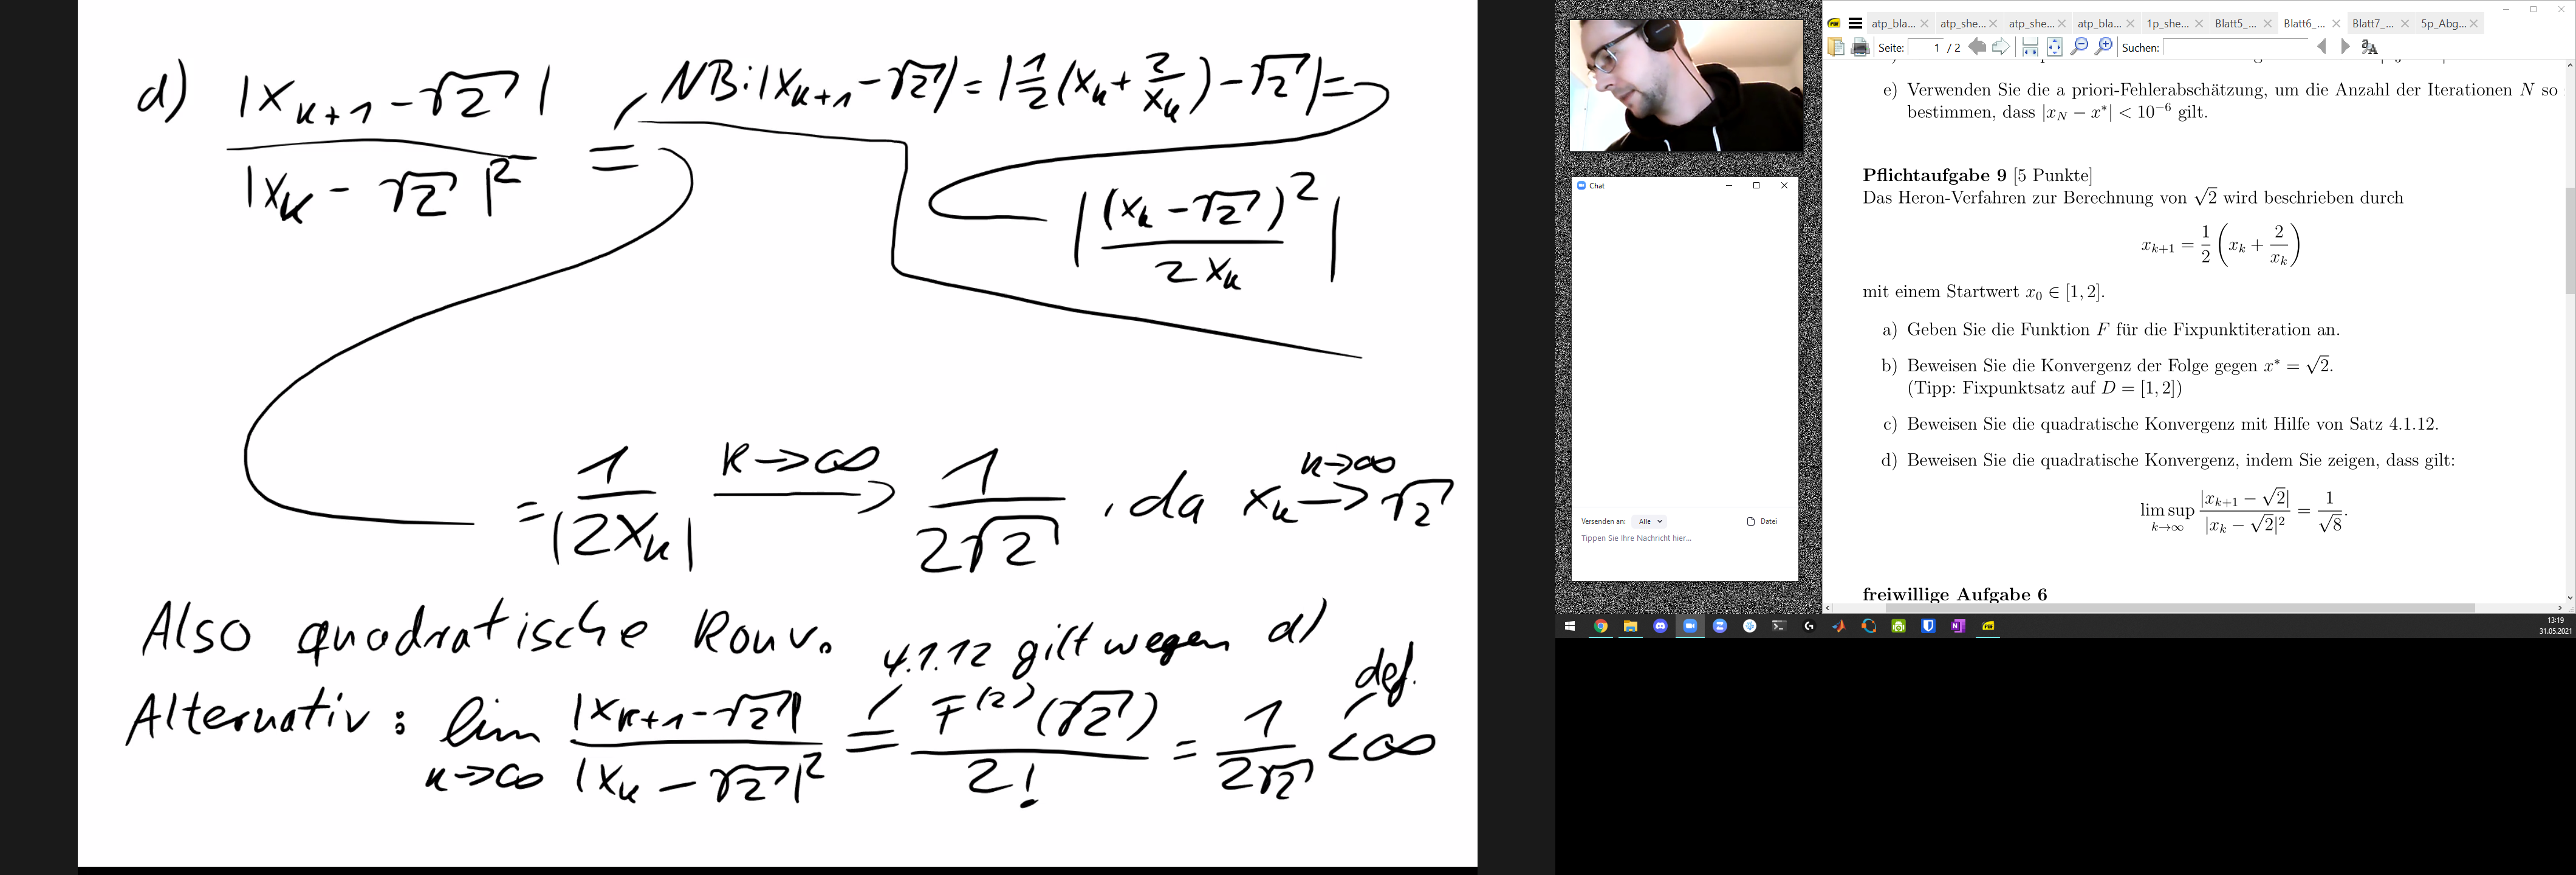 d) |x_{k+1} - √2| / |x_k - √2|² =
NB: |x_{k+1} - √2| = |½(x_k + 2/x_k) - √2| =
|(x_k - √2)² / 2x_k|
= 1/|2x_k| →^{k→∞} 1/(2√2), da x_k →^{k→∞} √2
Also quadratische Konv.
4.1.12 gilt wegen d)
Alternativ: lim_{k→∞} |x_{k+1} - √2| / |x_k - √2|² = F^{(2)}(√2) / 2! = 1/(2√2) < ∞
def.
Chat
Versenden an: Alle Datei
Tippen Sie Ihre Nachricht hier...
atp_bla... atp_she... atp_she... atp_bla... 1p_she... Blatt5_... Blatt6_... Blatt7_... 5p_Abg...
Seite: 1 / 2 Suchen:
e) Verwenden Sie die a priori-Fehlerabschätzung, um die Anzahl der Iterationen N so
bestimmen, dass |x_N − x*| < 10^{−6} gilt.
Pflichtaufgabe 9 [5 Punkte]
Das Heron-Verfahren zur Berechnung von √2 wird beschrieben durch
x_{k+1} = 1/2 (x_k + 2/x_k)
mit einem Startwert x_0 ∈ [1, 2].
a) Geben Sie die Funktion F für die Fixpunktiteration an.
b) Beweisen Sie die Konvergenz der Folge gegen x* = √2.
(Tipp: Fixpunktsatz auf D = [1, 2])
c) Beweisen Sie die quadratische Konvergenz mit Hilfe von Satz 4.1.12.
d) Beweisen Sie die quadratische Konvergenz, indem Sie zeigen, dass gilt:
lim sup_{k→∞} |x_{k+1} − √2| / |x_k − √2|² = 1/√8.
freiwillige Aufgabe 6
13:19
31.05.2021